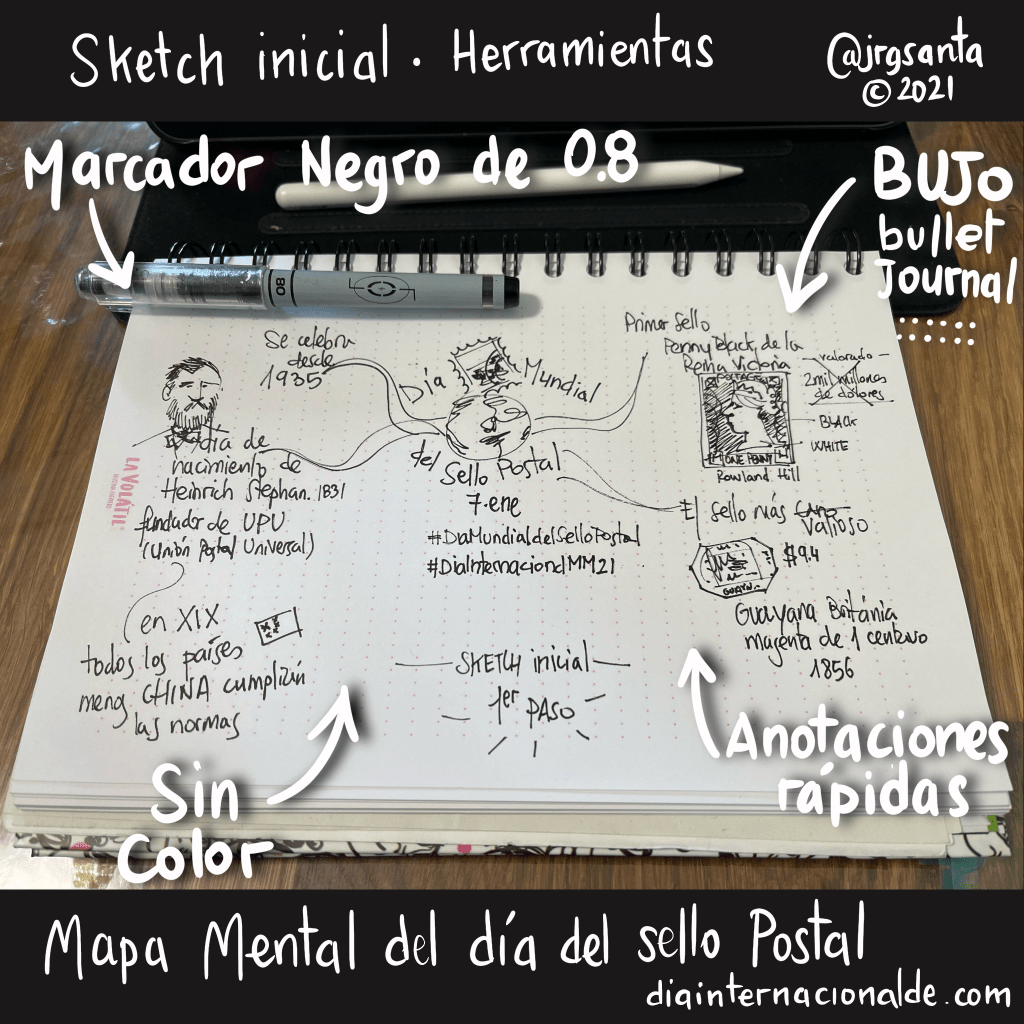 Sketch inicial. Herramientas
@jrgsanta
© 2021
Marcador Negro de 0.8
BUJO
bullet
Journal
80
Se celebra
desde
1935
Día Mundial
del Sello Postal
7.ene
#DiaMundialdelSelloPostal
#DiaInternacionalMM21
Primer Sello
Penny Black, de la
Reina Victoria
valorado
2mil millones
de dólares
BLACK
WHITE
POSTAGE
ONE PENNY
Rowland Hill
El día de
nacimiento de
Heinrich Stephan. 1831
fundador de UPU
(Unión Postal Universal)
LA VOLÁTIL
El sello más caro
valioso
$9.4
GUAYN.
Guayana Británia
magenta de 1 centavo
1856
en XIX
todos los países
meno CHINA cumplirín
las normas
SKETCH inicial
1er PASO
Sin
Color
Anotaciones
rápidas
Mapa Mental del día del sello Postal
diainternacionalde.com